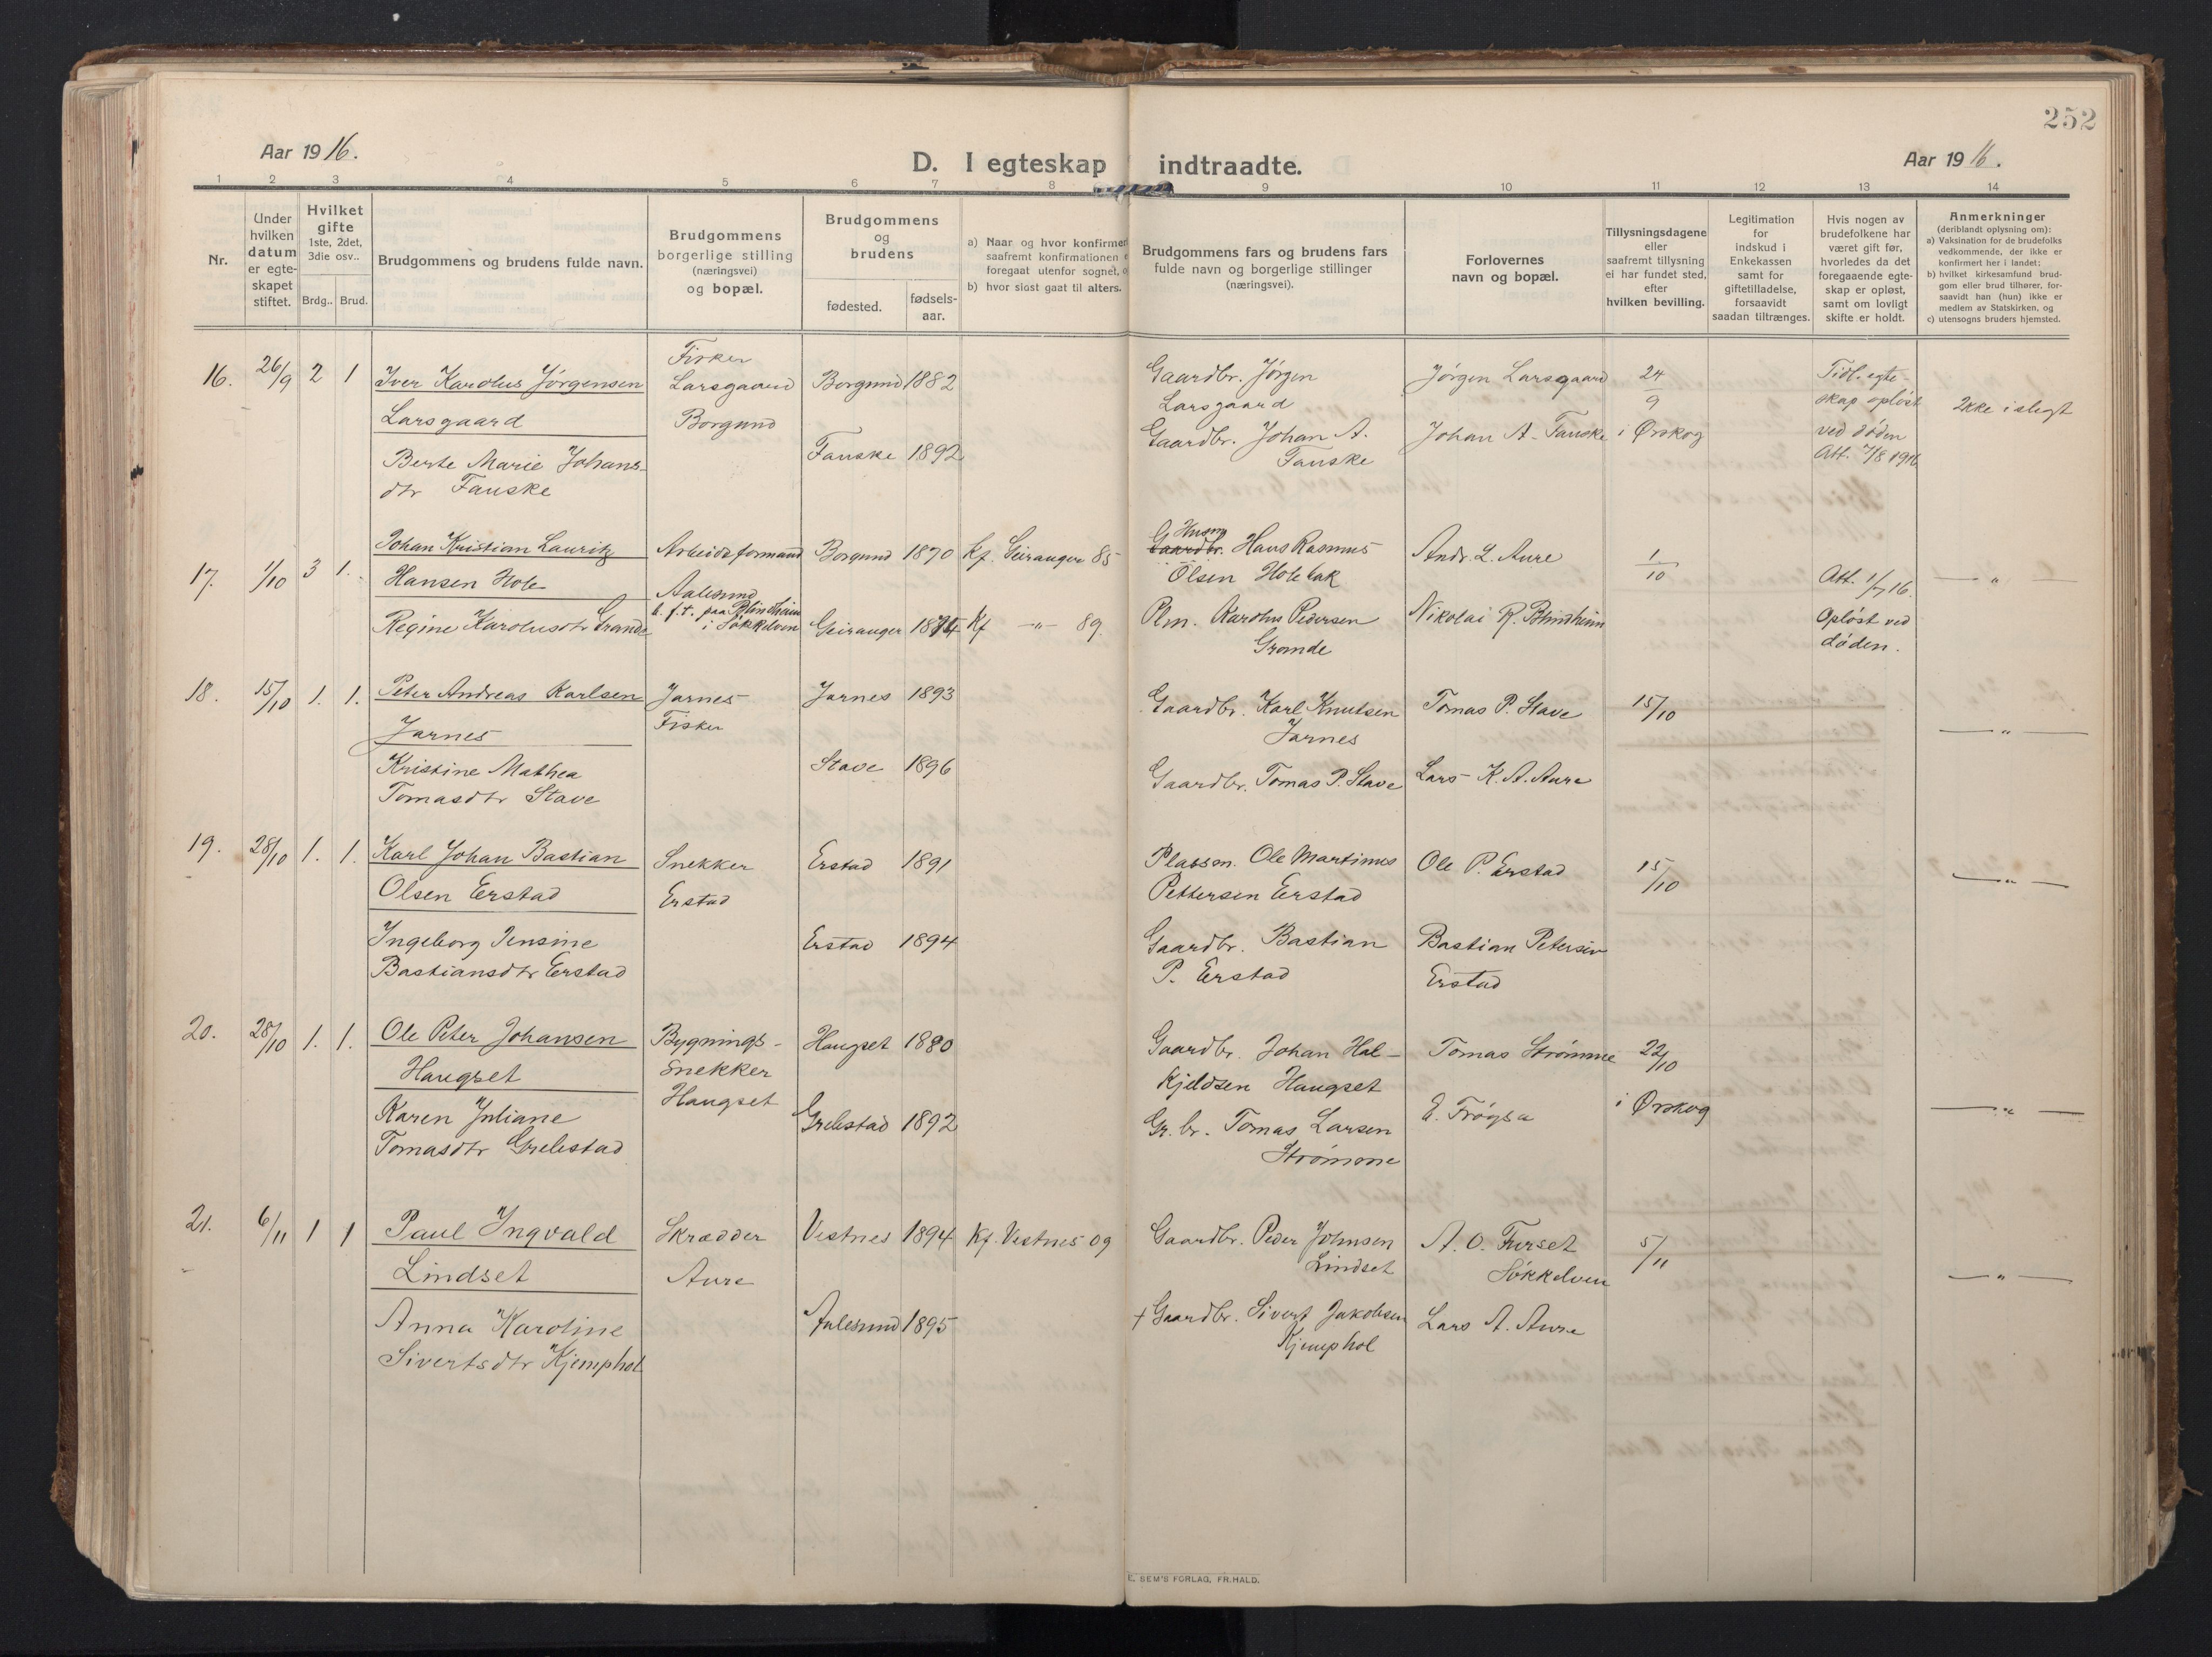 252
Aar 1916.
D. I egteskap indtraadte.
Aar 1916.
1 2 3 4 5 6 7 8 9 10 11 12 13 14
Nr.
Under hvilken datum er egte-skapet stiftet.
Hvilket gifte 1ste, 2det, 3die osv..
Brdg.. Brud.
Brudgommens og brudens fulde navn.
Brudgommens borgerlige stilling (næringsvei) og bopæl.
Brudgommens og brudens
fødested.
fødsels-aar.
a) Naar og hvor konfirmer
saafremt konfirmationen
foregaat utenfor sognet,
b) hvor sidst gaat til alters.
Brudgommens fars og brudens fars
fulde navn og borgerlige stillinger
(næringsvei).
Forlovernes
navn og bopæl.
Tillysningsdagene
eller
saafremt tillysning
ei har fundet sted,
efter
hvilken bevilling.
Legitimation
for
indskud i
Enkekassen
samt for
giftetilladelse,
forsaavidt
saadan tiltrænges.
Hvis nogen av
brudefolkene har
været gift før,
hvorledes da det
foregaaende egte-
skap er opløst,
samt om lovligt
skifte er holdt.
Anmerkninger
(deriblandt oplysning om):
a) Vaksination for de brudefolks
vedkommende, der ikke er
konfirmert her i landet;
b) hvilket kirkesamfund brud-
gom eller brud tilhører, for-
saavidt han (hun) ikke er
medlem av Statskirken, og
c) utensogns bruders hjemsted.
16. 26/9 2 1
Iver Karolus Jørgensen
Larsgaard
Berte Marie Johans-
dtr Fauske
Fisker
Larsgaard
Borgund
Borgund 1882
Fauske 1892
Gaardbr. Jørgen
Larsgaard
Gaardbr. Johan A.
Fauske
Jørgen Larsgaard
Johan A. Fauske
24
9
i Ørskog
Tidl. egte
skap opløst
ved døden
Att. 7/8 1916
Ikke i slegt
17. 1/10 3 1.
Johan Kristian Lauritz
Hansen Hole
Regine Karolusdtr Grande
Arbeidsformand
Aalesund
n. f. t. paa Blindheim
i Søkkelven
Borgund 1870 Kf. Geiranger 85
Geiranger 1874 Kf -"- 89.
Husm
Gaardbr. Hans Rasmus
Olsen Holebak
Plm. Karolus Pedersen
Grande
Andr. L. Aure
Nikolai R. Blindheim
1
10
Att. 1/7 16.
Opløst ved
døden.
— " —
18. 15/10 1. 1.
Peter Andreas Karlsen
Jarnes
Kristine Mathea
Tomasdtr Stave
Jarnes
Fisker
Jarnes 1893
Stave 1896
Gaardbr. Karl Knutsen
Jarnes
Gaardbr. Tomas P. Stave
Tomas P. Stave
Lars K. A. Aure
15/10
— " —
19. 28/10 1. 1.
Karl Johan Bastian
Olsen Erstad
Ingeborg Jensine
Bastiansdtr Erstad
Snekker
Erstad
Erstad 1891
Erstad 1894
Plassm. Ole Martinus
Pettersen Erstad
Gaardbr. Bastian
P. Erstad
Ole P. Erstad
Bastian Petersen
Erstad
15/10
— " —
20. 28/10 1. 1.
Ole Peter Johansen
Haugset
Karen Juliane
Tomasdtr Grebestad
Bygnings-
Snekker
Haugset
Haugset 1880
Grebestad 1892
Gaardbr. Johan Hal-
kjeldsen Haugset
Gr. br. Tomas Larsen
Strømme
Tomas Strømme
E. Frøysa
22/10
i Ørskog
— " —
21. 6/11 1 1
Paul Ingvald
Lindset
Anna Karoline
Sivertsdtr Kjemphol
Skrædder
Aure
Vestnes 1894 Kf. Vestnes 09
Aalesund 1895
Gaardbr. Peder Johnsen
Lindset
+ Gaardbr. Sivert Jakobsen
Kjemphol
A. O. Furset
Søkkelven
Lars A. Aure
5/11
— " —
E. SEM'S FORLAG, FR.HALD.